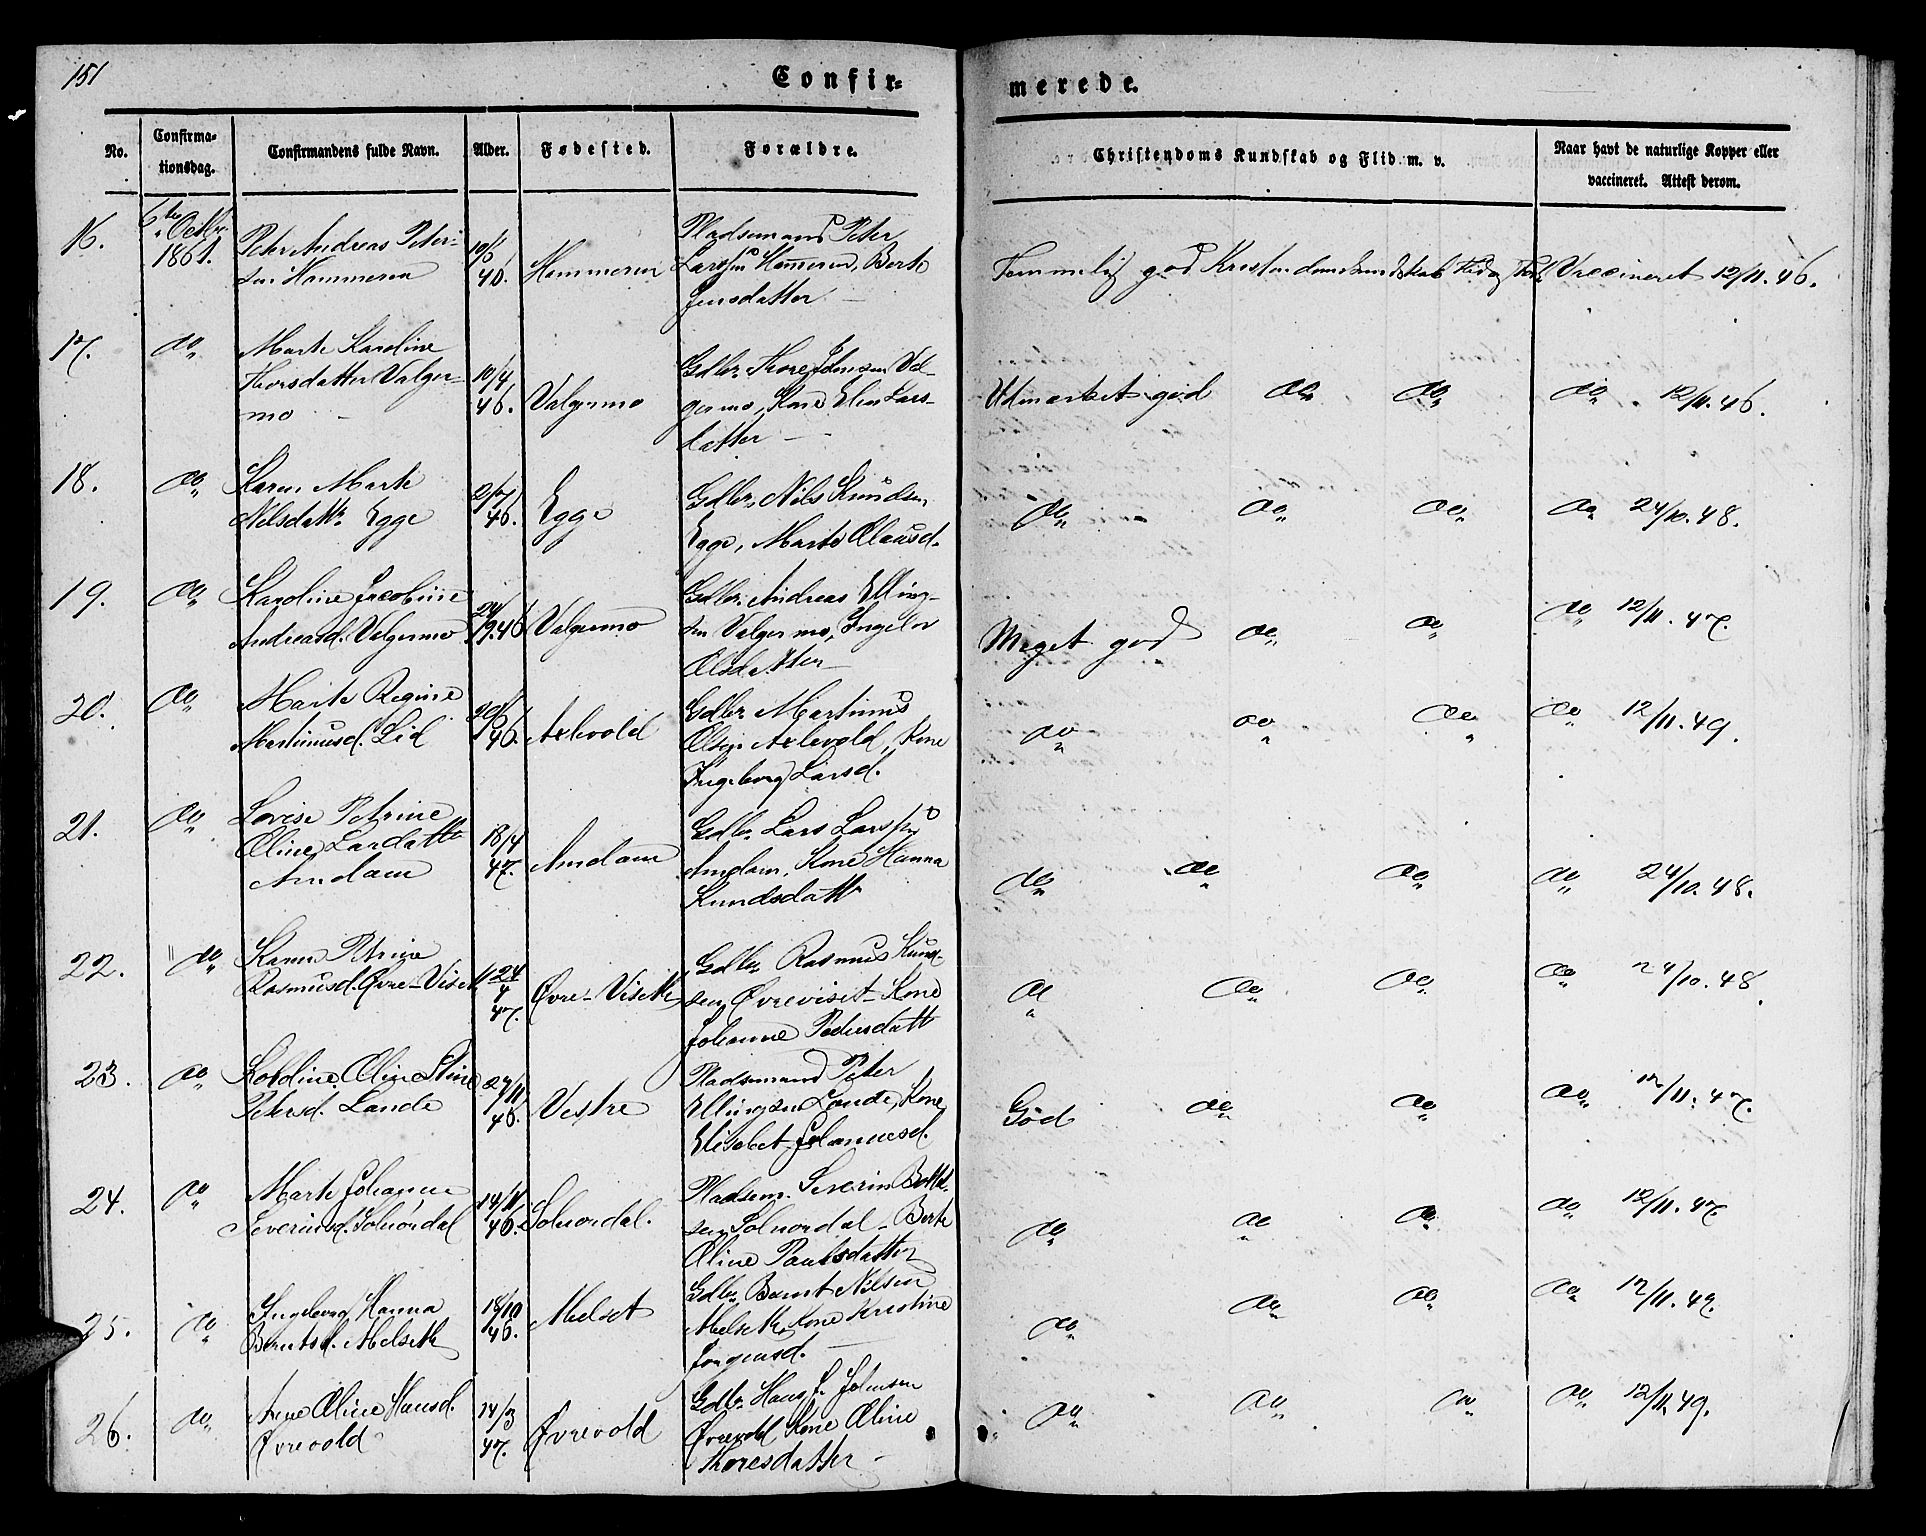 151
Confir=
merede.
No.
Confirma-
tionsdag.
Confirmandens fulde Navn.
Alder.
Fødested.
Forældre.
Christendoms Kundskab og Flid m. v.
Naar havt de naturlige Kopper eller
vaccineret. Attest derom.
16. 6te Octbr
1861.
Peter Andreas Peter=
sen Hammeren
10/6
40.
Hammeren
Pladsemand Peter
Larssen Hammeren, Berte
Jensdatter
Temmelig god Kristendomskundskab Flid og
Vaccineret 12/11. 46.
17. do
Marte Karoline
Thorsdatter Valger=
mo
10/4
46.
Valgermo
Gdbr. Thore Johnsen Val-
germo, Kone Elen Lars-
datter
Udmærket god do do do 12/11. 46.
18. do
Karen Marte
Nilsdattr Egge
2/7
46.
Egge
Gdbr. Nils Knudsen
Egge, Marte Olausd.
do do do do 24/10. 48.
19. do
Karoline Jacobine
Andreasd. Valgermo
24/9. 46
Valgermo
Gdbr. Andreas Elling-
sen Valgermo, Ingebor
Olsdatter
Meget god do do do 12/11. 47.
20. do
Marte Regine
Martinusd. Lid
46.
Axlevold
Gdbr. Martinus
Olsen Axlevold, Kone
Ingeborg Larsd.
do do do do 12/11. 49.
21. do
Lovise Petrine
Oline Larsdattr
Amdam
18/4
47.
Amdam
Gdbr. Lars Larssen
Amdam, Kone Hanna
Knudsdattr
do do do do 24/10. 48.
22. do
Karen Petrine
Rasmusd. Øvre-Viseth
24/4
47.
Øvre-Viseth
Gdbr. Rasmus Knud-
sen Øvreviset Kone
Johanne Pedersdatt
do do do do 24/10. 48.
23. do
Koldine Oline Stine
Petersd. Lande
27/11
46.
Vestre
Pladsemand Peter
Ellingsen Lande, Kone
Elisabet Johannesd.
God do do do 12/11. 47.
24. do
Marte Johanne
Severinsd. Solnørdal
14/11
46.
Solnørdal.
Pladsem. Severin
sen Solnørdal - Berte
Oline Paulsdatter
do do do do 12/11. 47.
25. do
Ingeborg Hanna
Berntsd. Melseth
18/10
46.
Melset
Gdbr. Bernt Nilsen
Melseth, Kone Kristine
Jørgensd.
do do do do 12/11. 49.
26. do
Ane Oline Hansd.
Øvrevold
14/3
47.
Øvrevold
Gdbr. Hans J. Johnsen
Øvrevold Kone Oline
Thoresdatter
do do do do 12/11. 49.